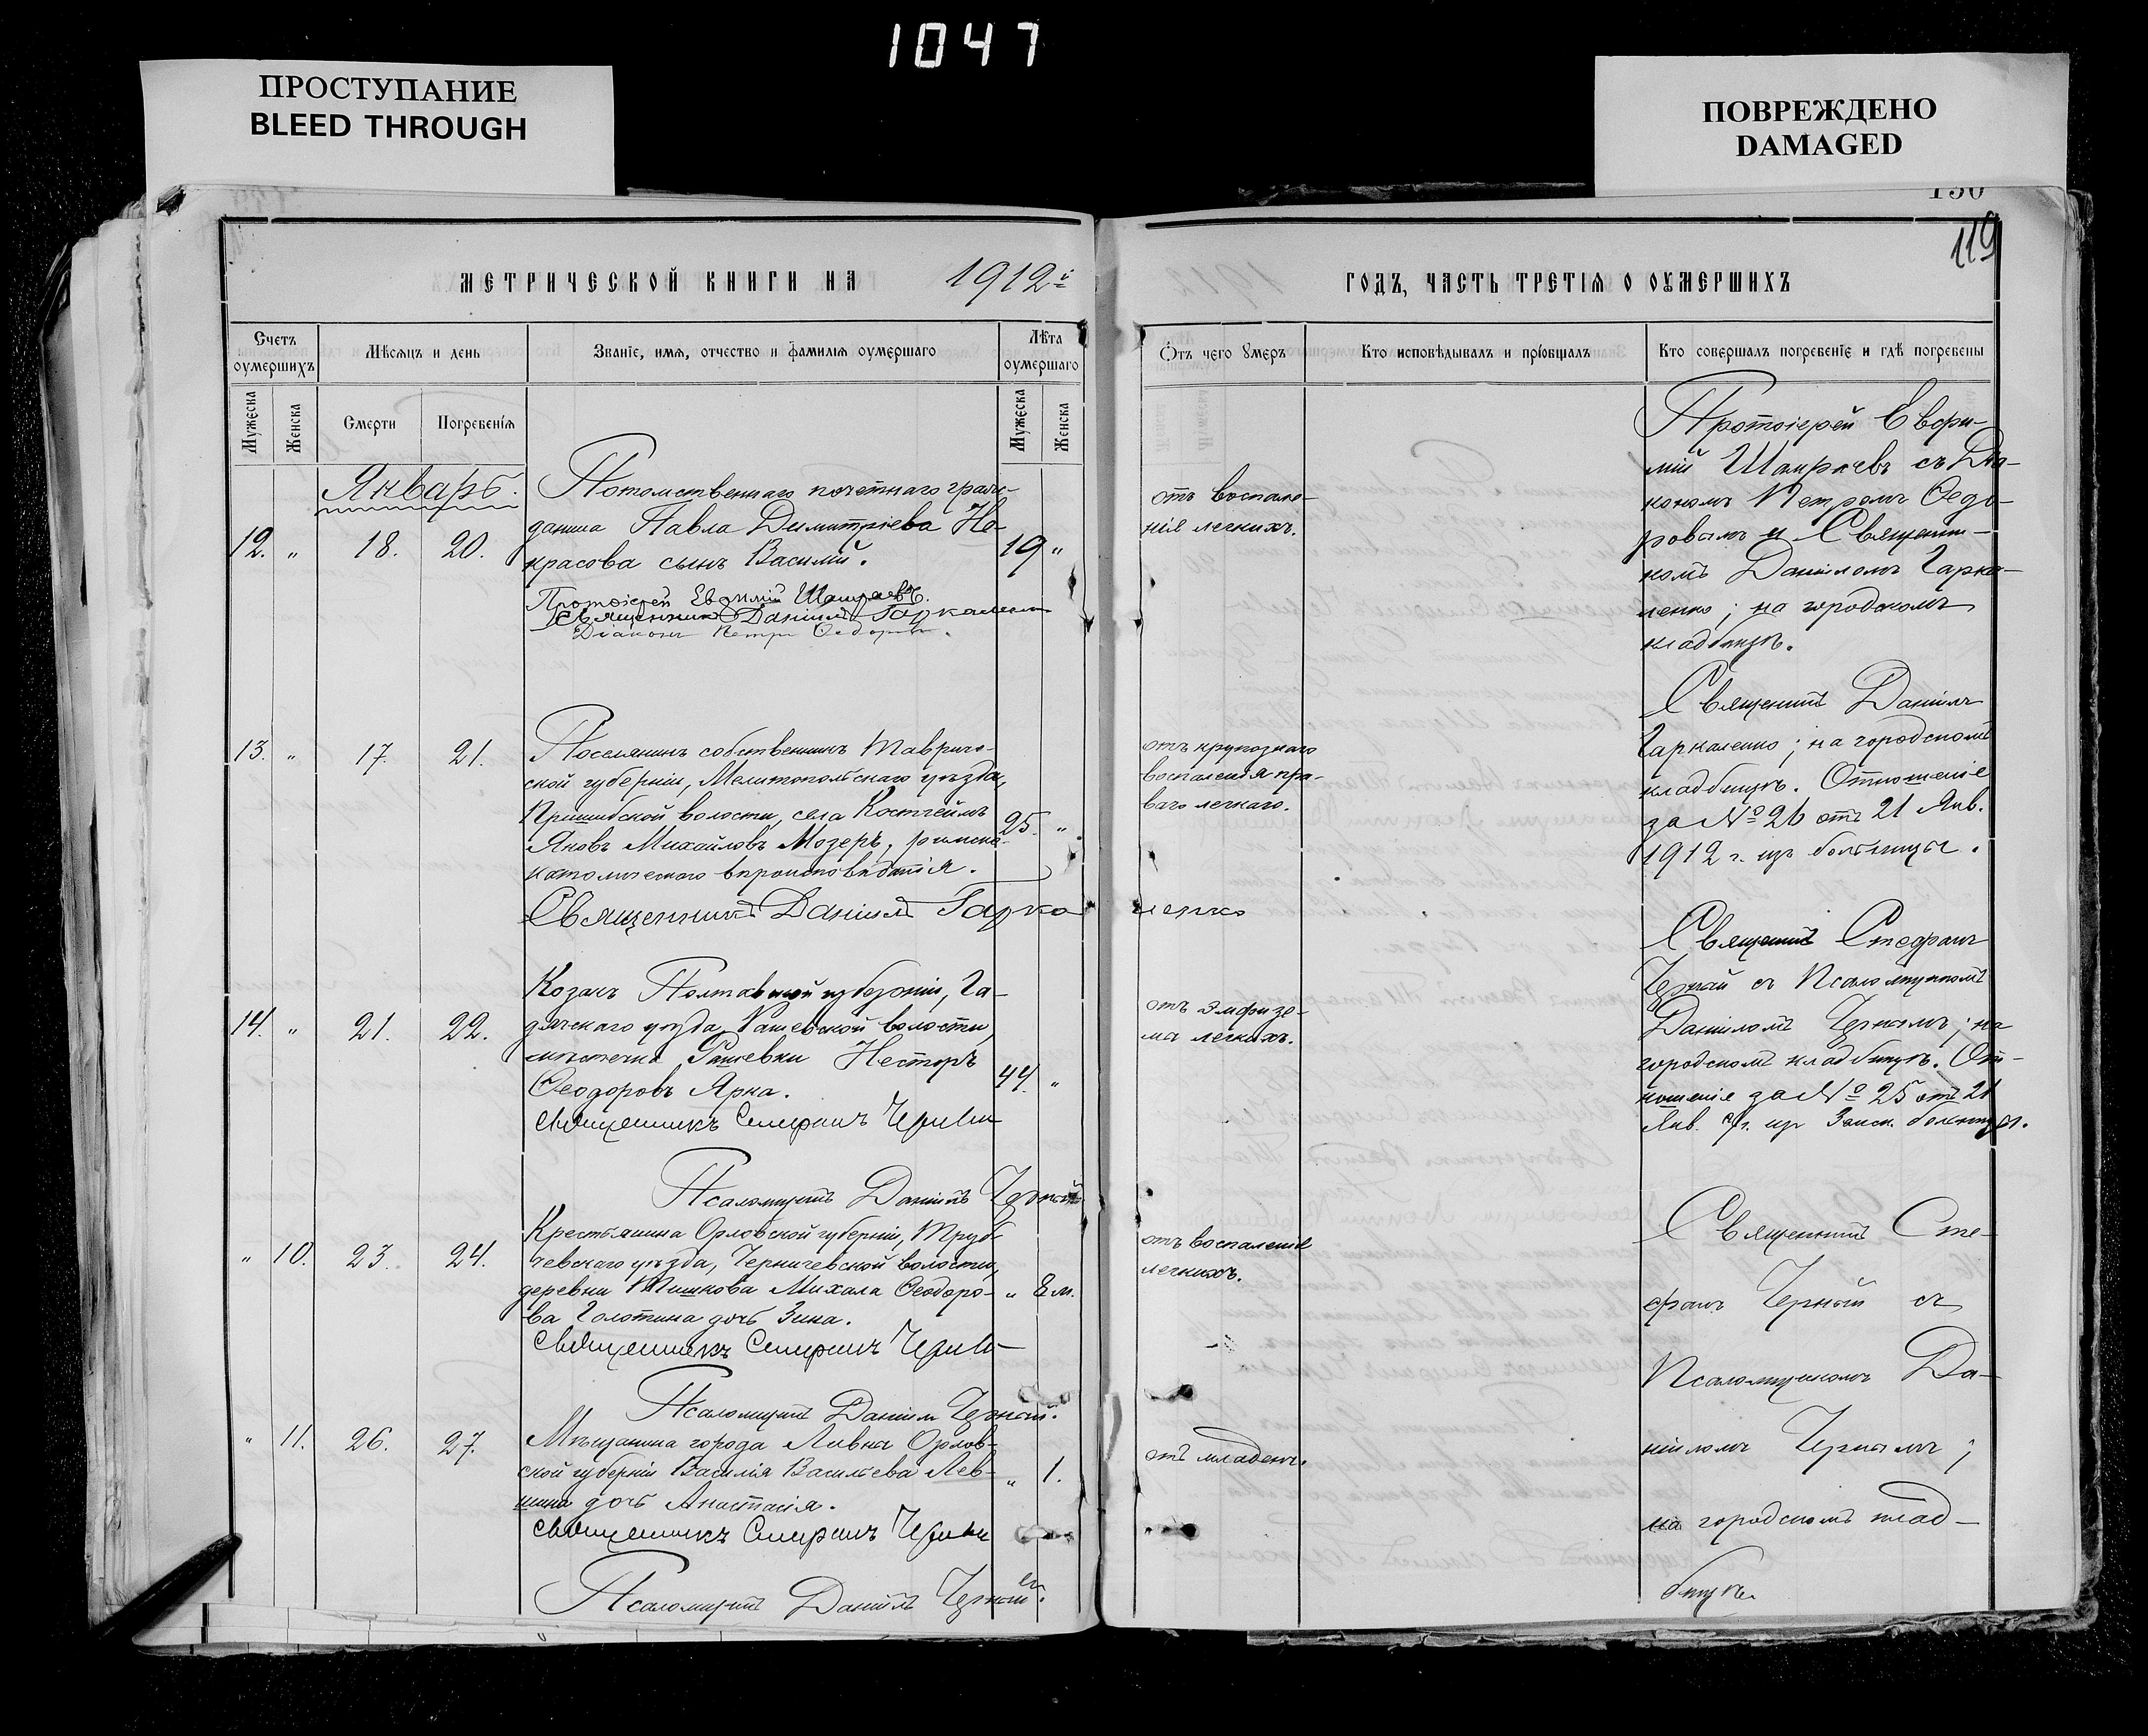 1047
ПРОСТУПАНИЕ
BLEED THROUGH
ПОВРЕЖДЕНО
DAMAGED
150
119
МЕТРИЧЕСКОЙ КНИГИ НА 1912й
ГОДЪ, ЧАСТЬ ТРЕТІЯ О ОУМЕРШИХЪ
Счетъ оумершихъ
Мѣсяцъ и день
Званіе, имя, отчество и фамилія оумершаго
Лѣта оумершаго
Отъ чего умеръ
Кто исповѣдывалъ и пріобщалъ
Кто совершалъ погребеніе и гдѣ погребены
Мужеска
Женска
Смерти
Погребенія
Мужеска
Женска
Январь.
12. „ 18. 20.
Потомственнаго почетнаго граж-
данина Павла Димитріева Не-
красова сынъ Василій.
19 „
Протоіерей Евфимій Шамраевъ.
Священникъ Даніилъ Гаркаленко
Діаконъ Петръ Федоровъ.
отъ воспале-
нія легкихъ.
Протоіерей Евфи-
мій Шамраевъ съ Діа-
кономъ Петромъ Федо-
ровымъ и Священни-
комъ Даніиломъ Гарка-
ленко; на городскомъ
кладбищѣ.
13. „ 17. 21.
Поселянинъ собственникъ Тавриче-
ской губерніи, Мелитопольскаго уѣзда,
Пришибской волости, села Костгеймъ
Яковъ Михайловъ Мозеръ, римско-
католическаго вѣроисповѣданія.
25. „
Священникъ Даніилъ Гаркаленко
отъ крупознаго
воспаленія пра-
ваго легкаго.
Священникъ Даніилъ
Гаркаленко; на городскомъ
кладбищѣ. Отношеніе
за № 26 отъ 21 Янв.
1912 г. изъ больницы.
14. „ 21. 22.
Козакъ Полтавской губерніи, Га-
дячскаго уѣзда, Рашевской волости,
мѣстечка Рашевки Несторъ
Феодоровъ Ярка.
44. „
Священникъ Стефанъ Черный
Псаломщикъ Даніилъ Черный
отъ эмфизе-
мы легкихъ.
Священникъ Стефанъ
Черный съ Псаломщикомъ
Даніиломъ Чернымъ; на
городскомъ кладбищѣ. От-
ношеніе за № 25 отъ 21
Янв. с/г. изъ Земск. больницы.
„ 10. 23. 24.
Крестьянина Орловской губерніи, Труб-
чевскаго уѣзда, Черничевской волости,
деревни Тишкова Михаила Феодоро-
ва Голотина дочь Зина.
„ 8 м.
Священникъ Стефанъ Черный
Псаломщикъ Даніилъ Черный.
отъ воспаленія
легкихъ.
„ 11. 26. 27.
Мѣщанина города Ливны Орлов-
ской губерніи Василія Васильева Лев-
шина дочь Анастасія.
„ 1.
Священникъ Стефанъ Черный
Псаломщикъ Даніилъ Черный.
отъ младенч.
Священникъ Сте-
фанъ Черный съ
Псаломщикомъ Да-
ніиломъ Чернымъ;
на городскомъ клад-
бищѣ.